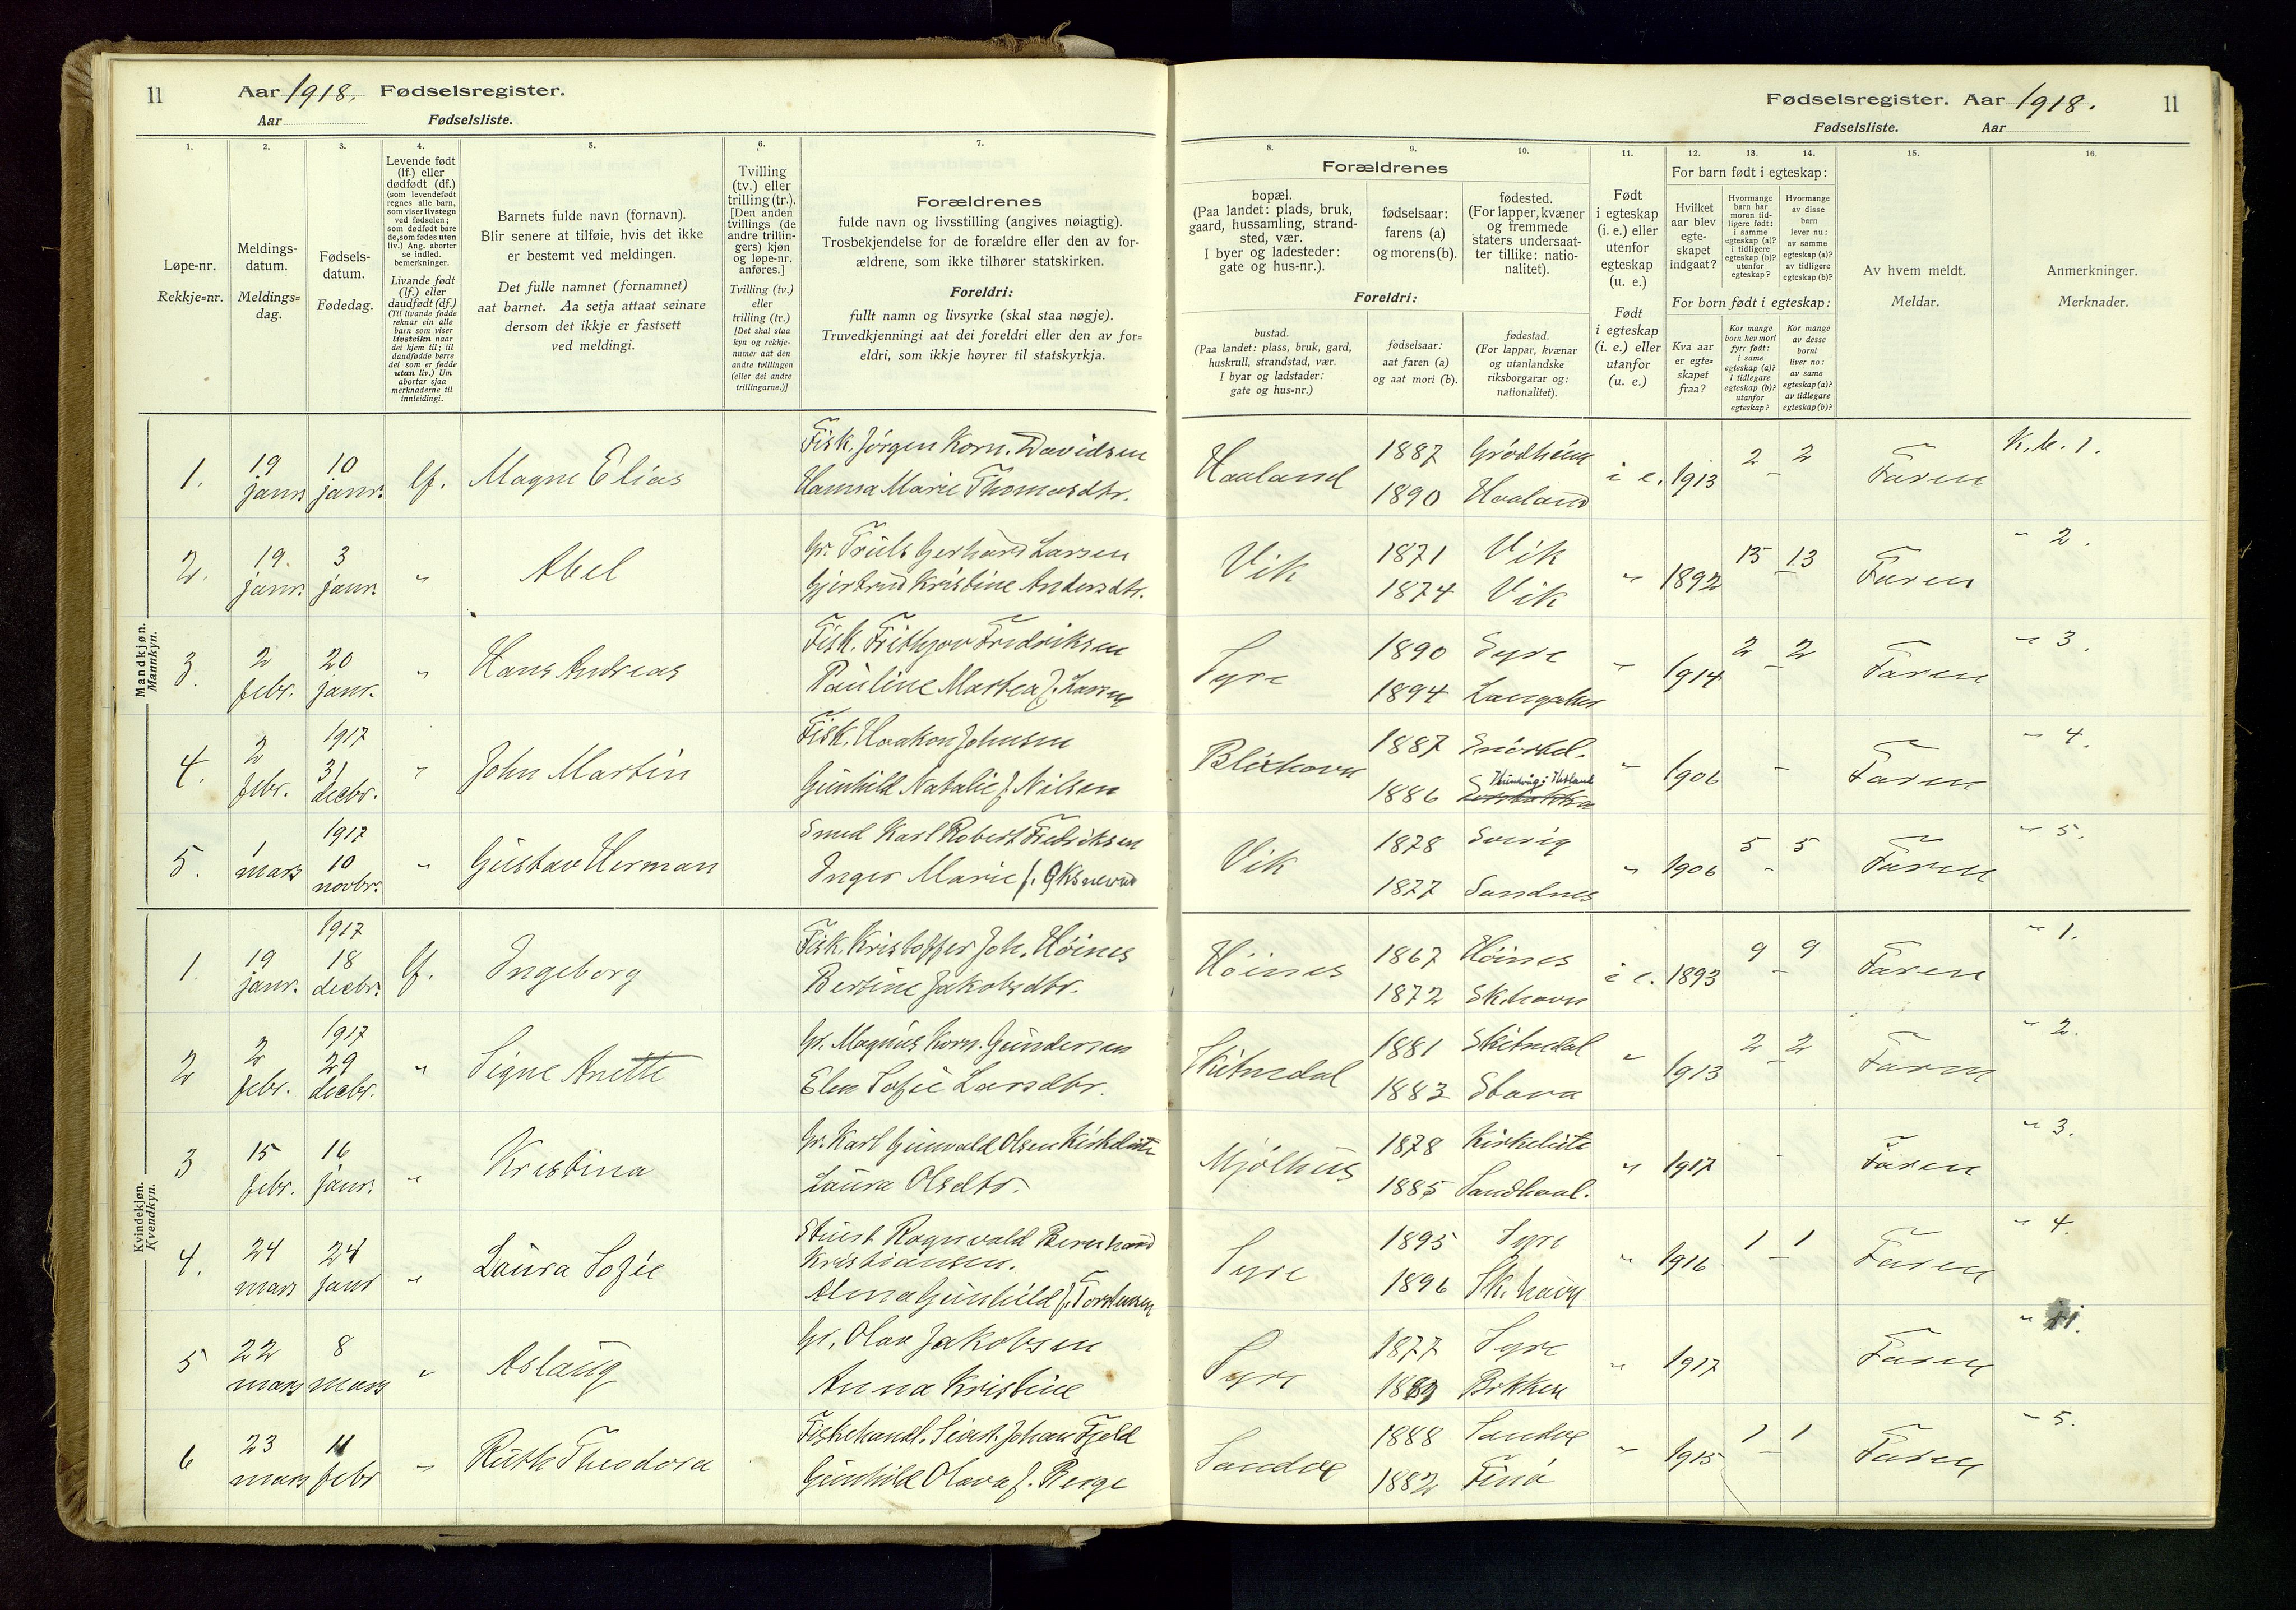 11 Aar 1918. Fødselsregister.
Aar Fødselsliste.
1. 2. 3. 4. 5. 6. 7.
Løpe-nr.
Rekkje=nr.
Meldings-
datum.
Meldings=
dag.
Fødsels-
datum.
Fødedag.
Levende født
(lf.) eller
dødfødt (df.)
(som levendefødt
regnes alle barn,
som viser livstegn
ved fødselen;
som dødfødt bare
de, som fødes uten
liv.) Ang. aborter
se indled.
bemerkninger.
Livande født
(lf.) eller
daudfødt (df.)
(Til livande fødde
reknar ein alle
barn som viser
livsteikn naar
dei kjem til; til
daudfødde berre
dei som er fødde
utan liv.) Um
abortar sjaa
merknaderne til
innleidingi.
Barnets fulde navn (fornavn).
Blir senere at tilføie, hvis det ikke
er bestemt ved meldingen.
Det fulle namnet (fornamnet)
aat barnet. Aa setja attaat seinare
dersom det ikkje er fastsett
ved meldingi.
Tvilling
(tv.) eller
trilling (tr.).
[Den anden
tvillings (de
andre trillin-
gers) kjøn
og løpe-nr.
anføres.]
Tvilling (tv.)
eller
trilling (tr.)
[Det skal staa
kyn og rekkje-
numer aat den
andre tvillingen
(eller dei andre
trillingarne.)]
Forældrenes
fulde navn og livsstilling (angives nøiagtig).
Trosbekjendelse for de forældre eller den av for-
ældrene, som ikke tilhører statskirken.
Foreldri:
fullt namn og livsyrke (skal staa nøgje).
Truvedkjenningi aat dei foreldri eller den av for=
eldri, som ikkje høyrer til statskyrkja.
Mandkjøn.
Mannkyn.
1. 19 janr. 10 janr. lf. Magne Elias Fisk. Jørgen Korn. Davidsen
Hanna Marie Thomasdtr.
2. 19. janr. 3 janr. " Abel Gr. Truls Gerhard Larsen
Gjertrud Kristine Andersdtr.
3. 2 febr. 20 janr. " Hans Andreas Fisk. Frithjov Fredriksen
Pauline Martea f. Larsen
4. 2 febr. 1917 31 decbr. " John Martin Fisk. Haakon Johnsen
Gunhild Natalie f. Nilsen
5. 1 mars 1917 10 novbr. " Gustav Herman Smed Karl Robert Fredriksen
Inger Marie f.
Kvindekjøn.
Kvendkyn.
1. 19 janr. 1917 18 decbr. lf. Ingeborg Fisk. Kristoffer Joh. Høines
Bertine Jakobsdtr.
2 2 febr. 1917 29 decbr. " Signe Anette Gr. Magnus Korn. Gundersen
Elen Sofie Larsdtr.
3 15 febr. 16 janr. " Kristina Gr. Karl Gunvald Olsen Kirkeleite
Laura Olsdtr.
4. 24 mars 24 janr " Laura Sofie Stuert Ragnvald Bernhard
Kristiansen.
Alma Gunhild f. Torstensen
5 22 mars 8 mars " Aslaug Gr. Olav Jakobsen
Anna Kristine
6 23 mars 11 febr " Ruth Theodora Fiskehandl. Sivert Johan Fjeld
Gunhild Olava f. Berge
Fødselsregister. Aar 1918. 11
Fødselsliste. Aar
8. 9. 10. 11. 12. 13. 14. 15. 16.
Forældrenes
bopæl.
(Paa landet: plads, bruk,
gaard, hussamling, strand-
sted, vær.
I byer og ladesteder:
gate og hus-nr.).
fødselsaar:
farens (a)
og morens (b).
fødested.
(For lapper, kvæner
og fremmede
staters undersaat-
ter tillike: natio-
nalitet).
Foreldri:
bustad.
(Paa landet: plass, bruk, gard,
huskrull, strandstad, vær.
I byar og ladstader:
gate og hus=nr.)
fødselsaar:
aat faren (a)
og aat mori (b).
fødestad.
(For lappar, kvænar
og utanlandske
riksborgarar og:
nationalitet).
Født
i egteskap
(i. e.) eller
utenfor
egteskap
(u. e.)
Født
i egteskap
(i. e.) eller
utanfor
(u. e.)
For barn født i egteskap:
Hvilket
aar blev
egte-
skapet
indgaat?
Hvormange
barn har
moren tid-
ligere født:
i samme
egteskap (a)?
i tidligere
egteskap (b)?
utenfor
egteskap?
Hvormange
av disse
barn
lever nu:
av samme
egteskap (a)?
av tidligere
egteskap (b)?
For born født i egteskap:
Kva aar
er egte=
skapet
fraa?
Kor mange
born hev mori
fyrr født:
i same
egteskap (a)?
i tidlegare
egteskap (b)?
utanfor
egteskap?
Kor mange
av desse
borni
liver no:
av same
egteskap (a)?
av tidlegare
egteskap (b)?
Av hvem meldt.
Meldar.
Anmerkninger.
Merknader.
Haaland 1887 Grødheim i e. 1913 2 - 2 Faren K. b. 1.
1890 Haaland
Vik 1871 Vik " 1892 13 - 13 Faren " 2.
1874 Vik
Syre 1890 Syre " 1914 2 - 2 Faren " 3.
1894 Langaker
Blikhavn 1887 " 1906 - Faren " 4.
1886
Vik 1878 Sverig " 1906 5 - 5 Faren " 5.
1877 Sandnes
Høines 1867 Høines i e. 1893 9 - 9 Faren " 1.
1872 Sk.havn
Skitnedal 1881 Skitnedal " 1913 2 - 2 Faren " 2.
1883 Stava
Mjølhus 1878 Kirkeleite " 1917 - Faren " 3.
1885 Sandhaal.
Syre 1895 Syre " 1916 1 - 1 Faren " 4.
1896 Sk.havn
Syre 1877 Syre " 1917 Faren "
Bikken
Sandve 1888 Sandve " 1915 1 - 1 Faren " 5.
1882 Finø